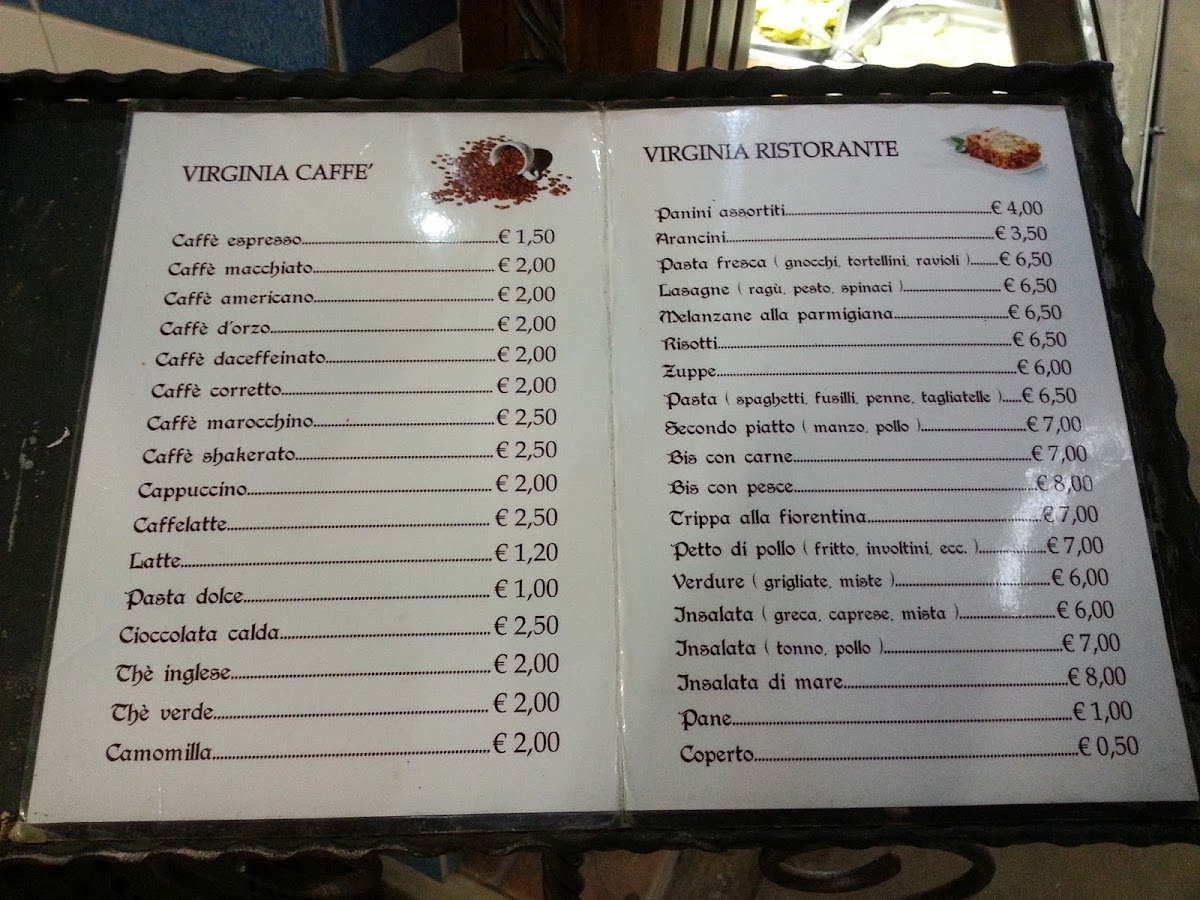 VIRGINIA CAFFE'
Caffè espresso........€ 1,50
Caffè macchiato........€ 2,00
Caffè americano........€ 2,00
Caffè d'orzo........€ 2,00
Caffè daceffeinato........€ 2,00
Caffè corretto........€ 2,00
Caffè marocchino........€ 2,50
Caffè shakerato........€ 2,50
Cappuccino........€ 2,00
Caffelatte........€ 2,50
Latte........€ 1,20
Pasta dolce........€ 1,00
Cioccolata calda........€ 2,50
Thè inglese........€ 2,00
Thè verde........€ 2,00
Camomilla........€ 2,00
VIRGINIA RISTORANTE
Panini assortiti........€ 4,00
Arancini........€ 3,50
Pasta fresca ( gnocchi, tortellini, ravioli )........€ 6,50
Lasagne ( ragù, pesto, spinaci )........€ 6,50
Melanzane alla parmigiana........€ 6,50
Risotti........€ 6,50
Zuppe........€ 6,00
Pasta ( spaghetti, fusilli, penne, tagliatelle )......€ 6,50
Secondo piatto ( manzo, pollo )........€ 7,00
Bis con carne........€ 7,00
Bis con pesce........€ 8,00
Trippa alla fiorentina........€ 7,00
Petto di pollo ( fritto, involtini, ecc. )........€ 7,00
Verdure ( grigliate, miste )........€ 6,00
Insalata ( greca, caprese, mista )........€ 6,00
Insalata ( tonno, pollo )........€ 7,00
Insalata di mare........€ 8,00
Pane........€ 1,00
Coperto........€ 0,50